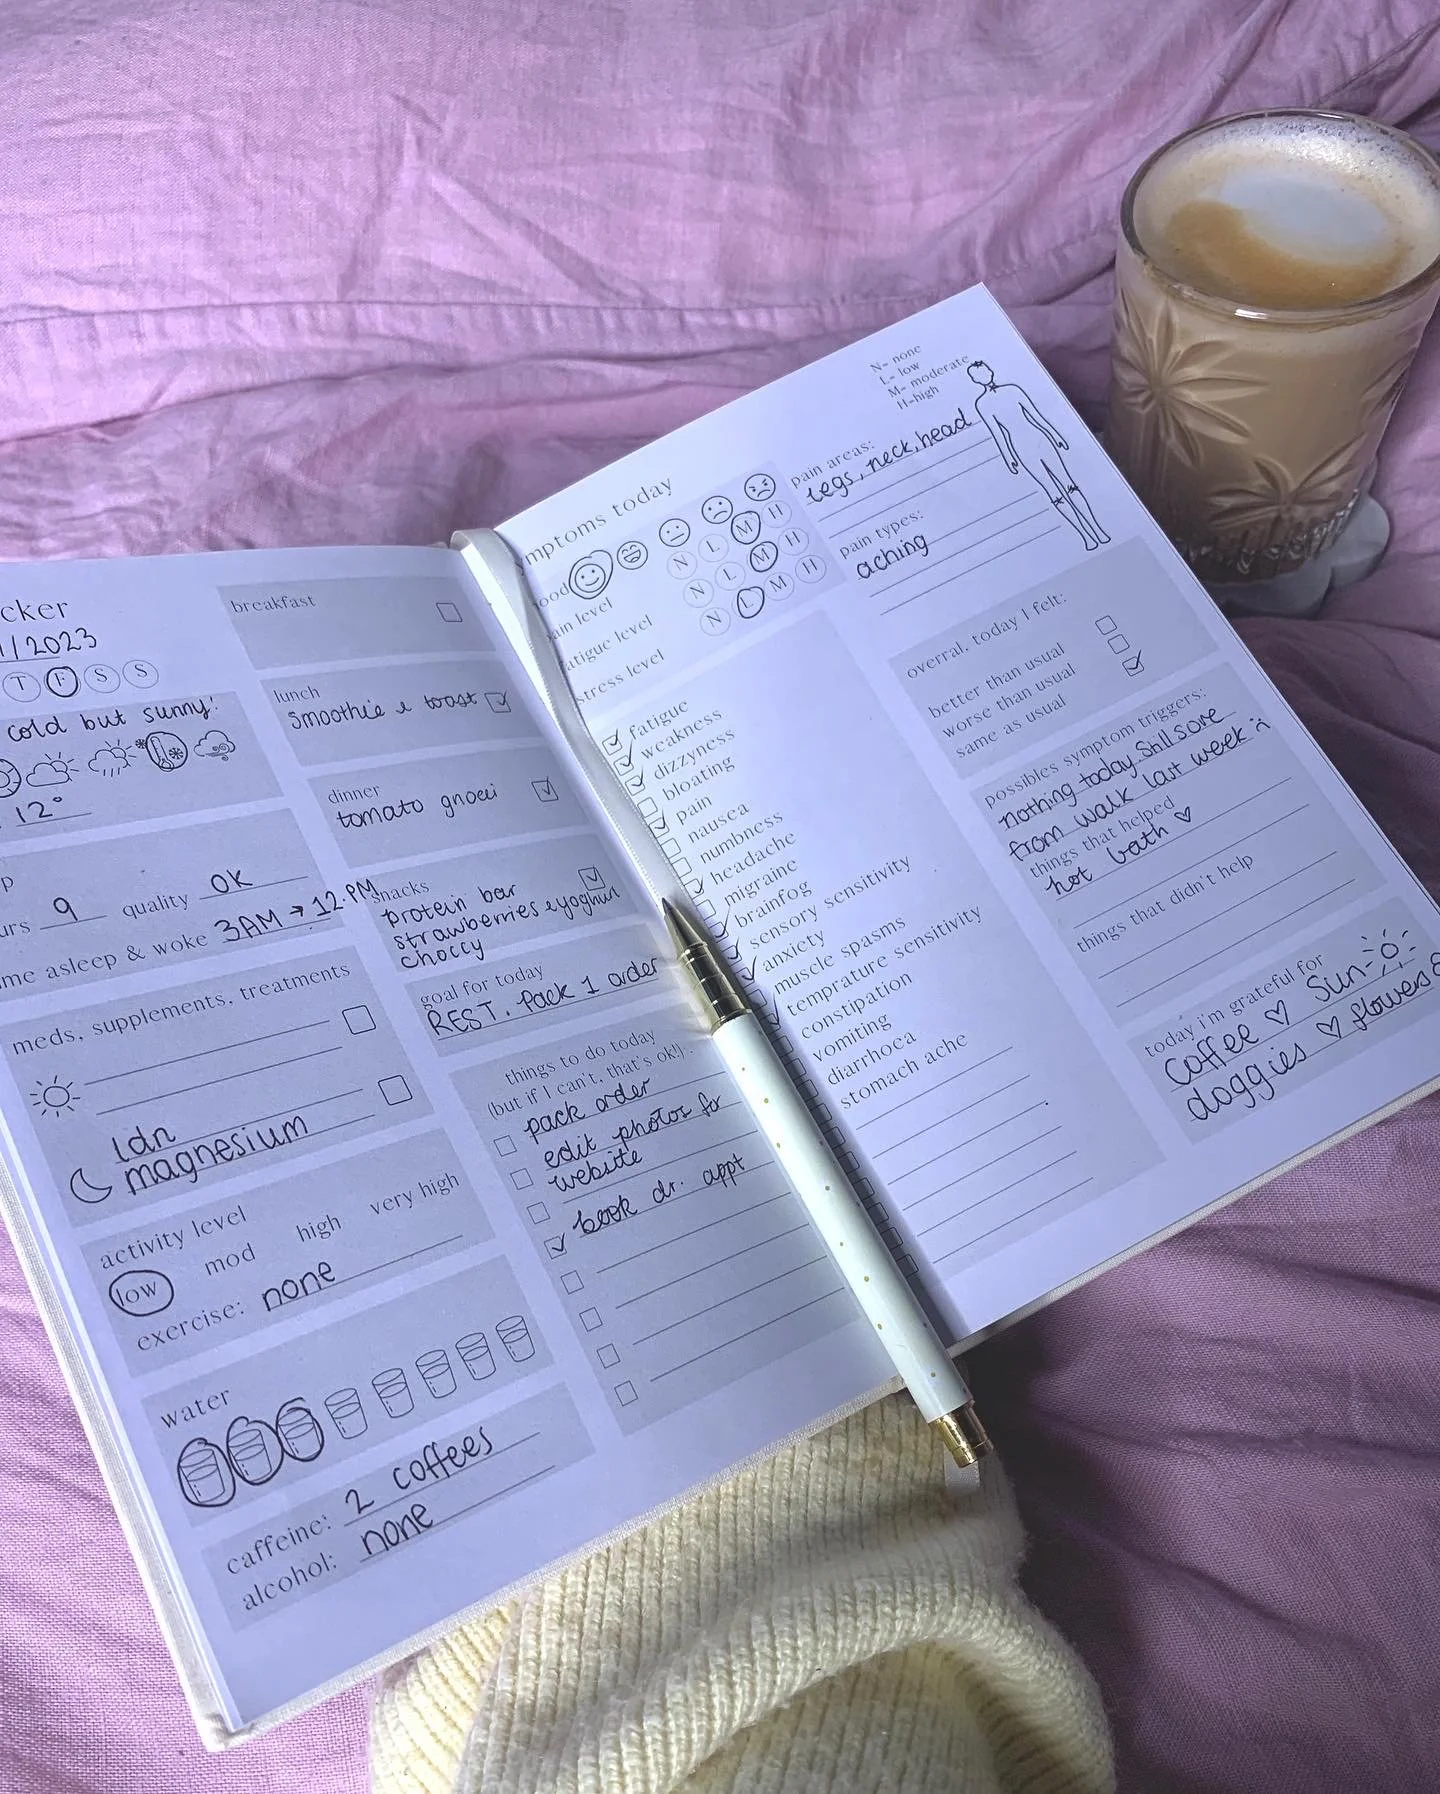 cker
1/2023
T F S S
cold but sunny!
12°
p
urs 9 quality OK
me asleep & woke 3AM → 12.PM
meds, supplements, treatments
ldn
magnesium
activity level
low mod high very high
exercise: none
water
caffeine: 2 coffees
alcohol: none
breakfast
lunch
smoothie & toast
dinner
tomato gnocci
snacks
protein bar
strawberries & yoghurt
choccy
goal for today
REST. Pack 1 order
things to do today
(but if I can't, that's ok!)
pack order
edit photos for
website
book dr. appt
mptoms today
ood
ain level N L M H
atigue level N L M H
stress level N L M H
fatigue
weakness
dizzyness
bloating
pain
nausea
numbness
headache
migraine
brainfog
sensory sensitivity
anxiety
muscle spasms
temprature sensitivity
constipation
vomiting
diarrhoea
stomach ache
N= none
L= low
M= moderate
H=high
pain areas:
legs, neck, head
pain types:
aching
overral, today I felt:
better than usual
worse than usual
same as usual
possibles symptom triggers:
nothing today. Still sore
from walk last week :(
things that helped
hot bath ♡
things that didn't help
today i'm grateful for
Coffee ♡ Sun
doggies ♡ flowers